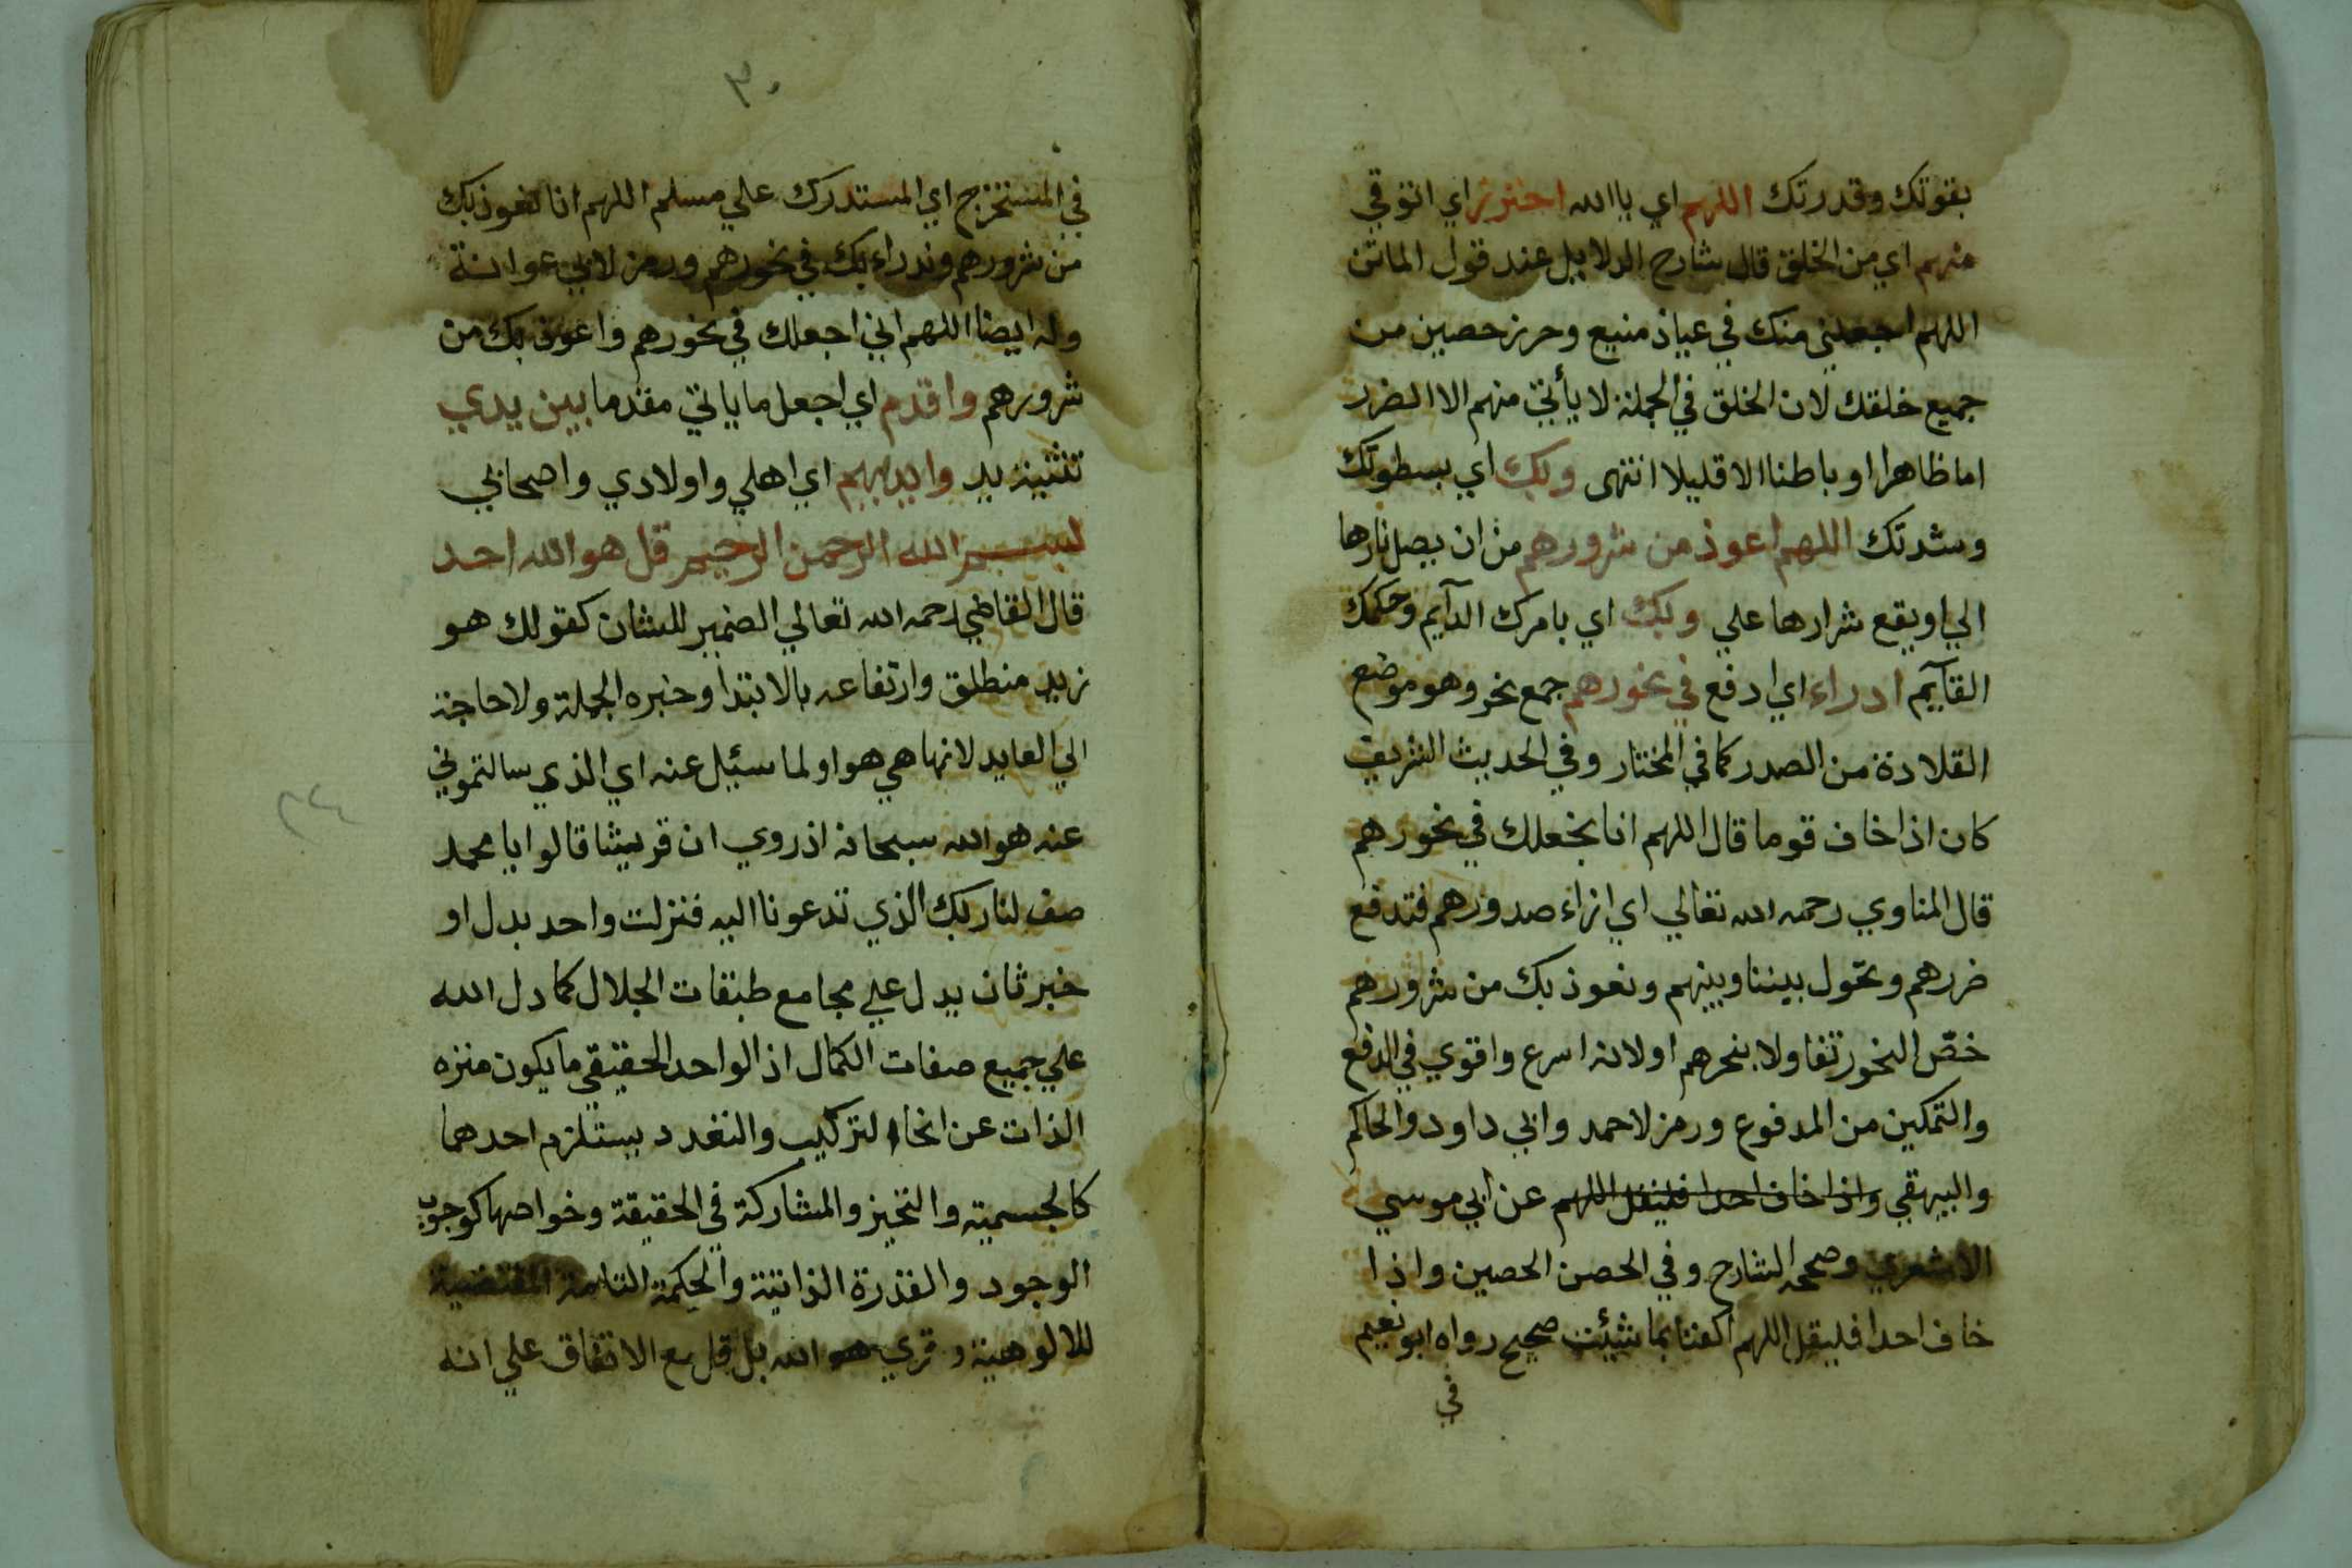 بقوتك وقدرتك اللهم اي يا الله احترز اي اتوقي
منهم اي من الخلق قال شارح الدلايل عند قول الماتن
اللهم اجعلني منك في عياذ منيع وحرز حصين من
جميع خلقك لان الخلق في الجملة لا يأتي منهم الا الضرر
اما ظاهرا او باطنا الا قليلا انتهى وبك اي بسطوتك
وشدتك اللهم اعوذ من شرورهم من ان يصل نارها
الي او يقع شرارها علي وبك اي بامرك الدآيم وحكمك
القآيم ادراء اي ادفع في نحورهم جمع نحر وهو موضع
القلادة من الصدر كما في المختار وفي الحديث الشريف
كان اذا خاف قوما قال اللهم انا نجعلك في نحورهم
قال المناوي رحمه الله تعالي اي ازاء صدورهم فتدفع
ضررهم وتحول بيننا وبينهم ونعوذ بك من شرورهم
خصّ النحور تفاولا بنحرهم او لانه اسرع واقوي في الدفع
والتمكين من المدفوع ورمز لاحمد وابي داود والحاكم
والبيهقي واذا خاف احدا فليقل اللهم عن أبي موسي
الاشعري وصححه الشارح وفي الحصن الحصين واذا
خاف احدا فليقل اللهم اكفنا بما شئت صحيح رواه ابو نعيم
في
٣٠
في المستخرج اي المستدرك علي مسلم اللهم انا نعوذ بك
من شرورهم وندراء بك في نحورهم ورمز لابي عوانة
وله ايضا اللهم اني اجعلك في نحورهم واعوذ بك من
شرورهم واقدم اي اجعل ما ياتي مقدما بين يدي
تثنية يد وايديهم اي اهلي واولادي واصحابي
بسم الله الرحمن الرحيم قل هو الله احد
قال القاضي رحمه الله تعالي الضمير للشان كقولك هو
زيد منطلق وارتفاعه بالابتدا وخبره الجملة ولا حاجة
الي العايد لانها هي هو او لما سئيل عنه اي الذي سالتموني
عنه هو الله سبحانه اذ روي ان قريشا قالوا يا محمد
صف لنا ربك الذي تدعونا اليه فنزلت واحد بدل او
خبر ثان يدل علي مجامع طبقات الجلال كما دل الله
علي جميع صفات الكمال اذ الواحد الحقيقي ما يكون منزه
الذات عن انحاء التركيب والتعدد يستلزم احدهما
كالجسمية والتحيز والمشاركة في الحقيقة وخواصها كوجوب
الوجود والقدرة الذاتية والحكمة التامة المقتضية
للالوهية وقري هو الله بل قل مع الاتفاق علي انه